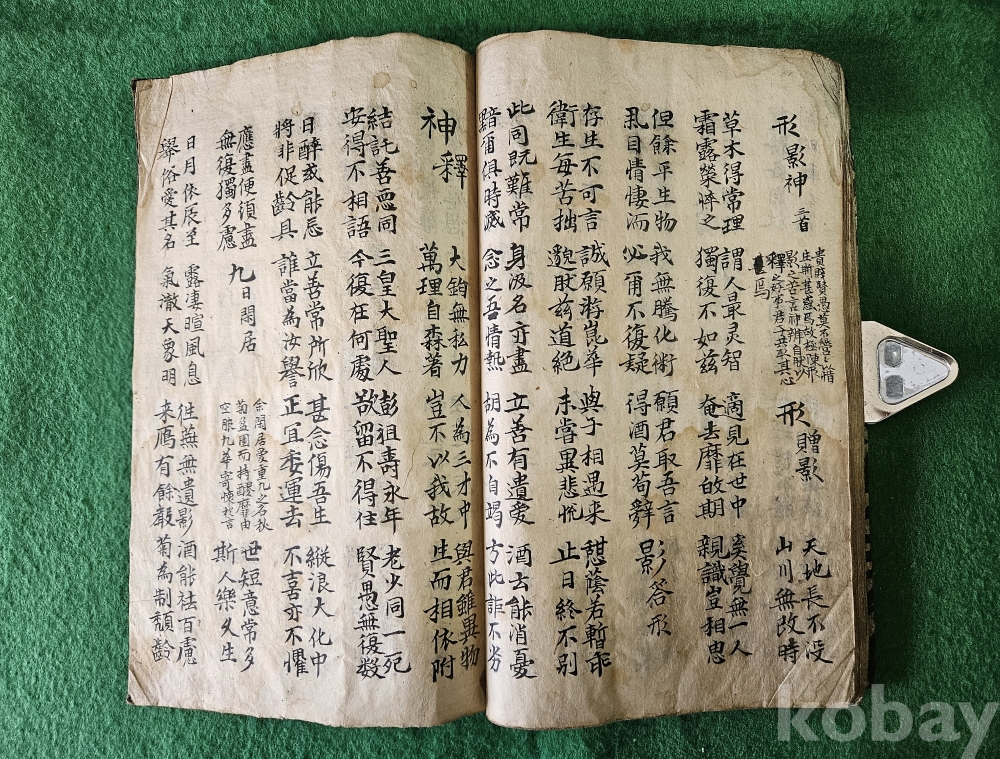 形影神 三首
貴賤賢愚莫不營〻以惜
生斯甚惑焉故極陳形
影之苦言神辨自然以
釋之好事君子共取其心
焉
形贈影
天地長不没
山川無改時
草木得常理
霜露榮悴之
謂人最灵智
獨復不如兹
適見在世中
奄去靡敀期
奚覺無一人
親識豈相思
但餘平生物
舉目情悽洏
我無騰化術
必爾不復疑
願君取吾言
得酒莫苟辭
影答形
存生不可言
衛生每苦拙
誠願游崑華
邈然兹道絕
與子相遇来
未嘗異悲悅
憇蔭若暫乖
止日終不別
此同既難常
黯爾俱時滅
身没名亦盡
念之吾情熱
立善有遺愛
胡為不自竭
酒云能消憂
方此詎不劣
神釋
大鈞無私力
萬理自森著
人為三才中
豈不以我故
與君雖異物
生而相依附
結託善惡同
安得不相語
三皇大聖人
今復在何處
彭祖壽永年
欲留不得住
老少同一死
賢愚無復数
日醉或能忘
將非促齡具
立善常所欣
誰當為汝譽
甚念傷吾生
正宜委運去
縱浪大化中
不喜亦不懼
應盡便須盡
無復獨多慮
九日閑居
余閑居愛重九之名秋
菊盈園而持醪靡由
空服九華寄懷於言
世短意常多
斯人樂久生
日月依辰至
舉俗愛其名
露凄暄風息
氣澈天象明
徃燕無遺影
来鴈有餘聲
酒能祛百慮
菊為制頹齡
kobay